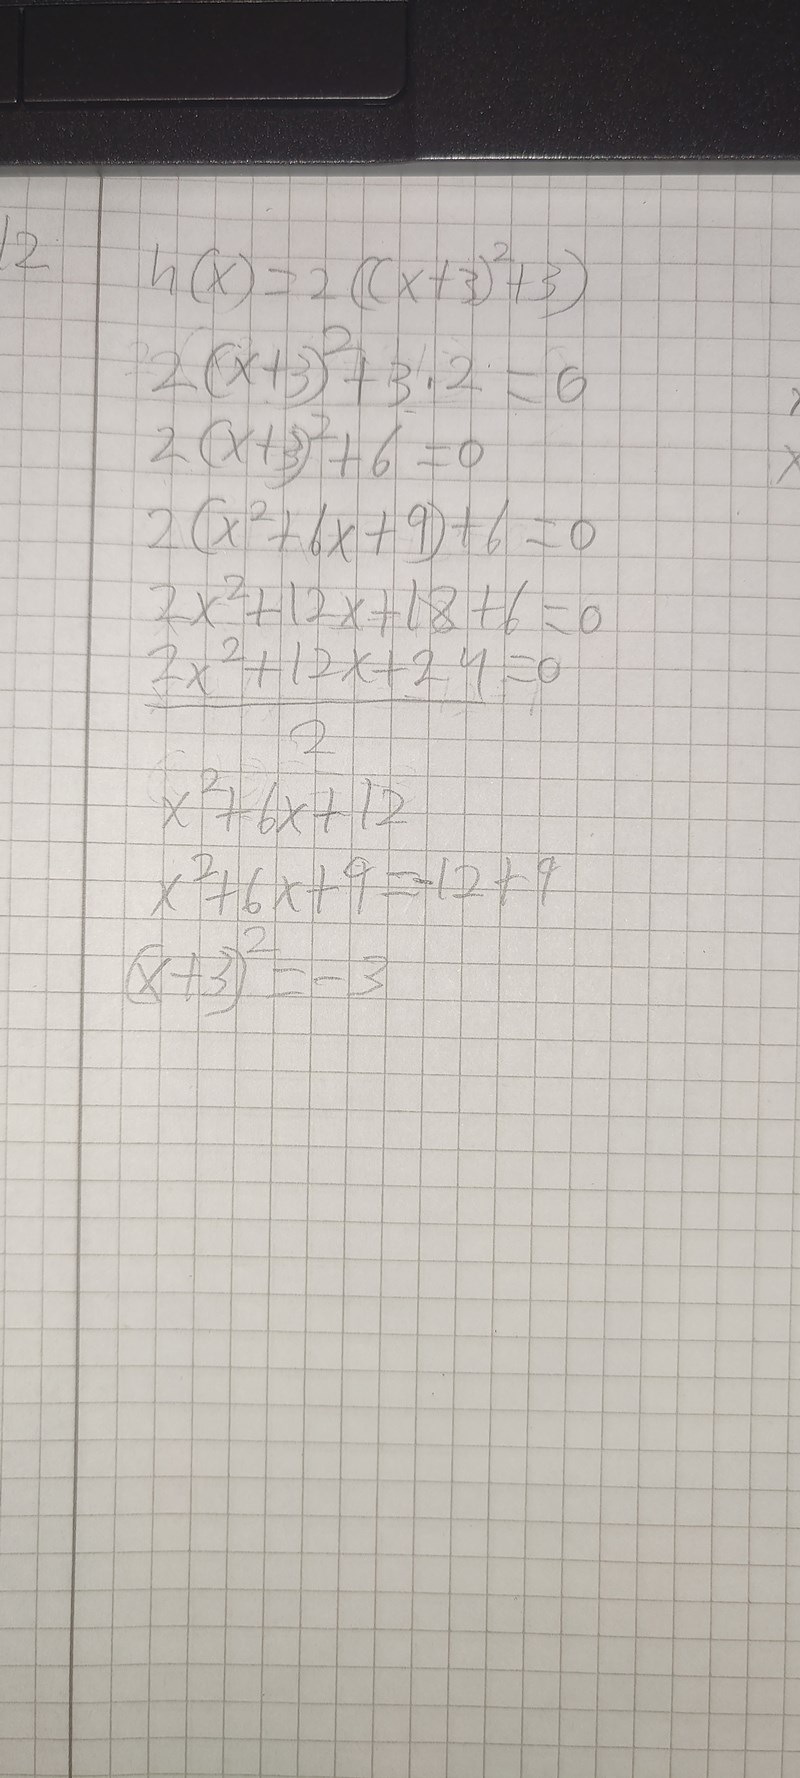 12
h(x)=2((x+3)²+3)
2(x+3)²+3·2=0
2(x+3)²+6=0
2(x²+6x+9)+6=0
2x²+12x+18+6=0
2x²+12x+24=0
2
x²+6x+12
x²+6x+9=-12+9
(x+3)²=-3
x